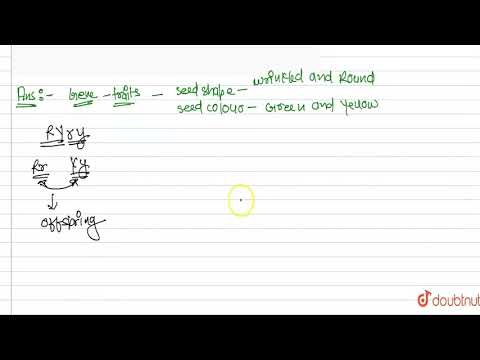 Ans:- Gene - traits - seed shape - wrinkled and Round
seed colour - Green and Yellow
RYry
Rr Yy
↓
offspring
doubtnut